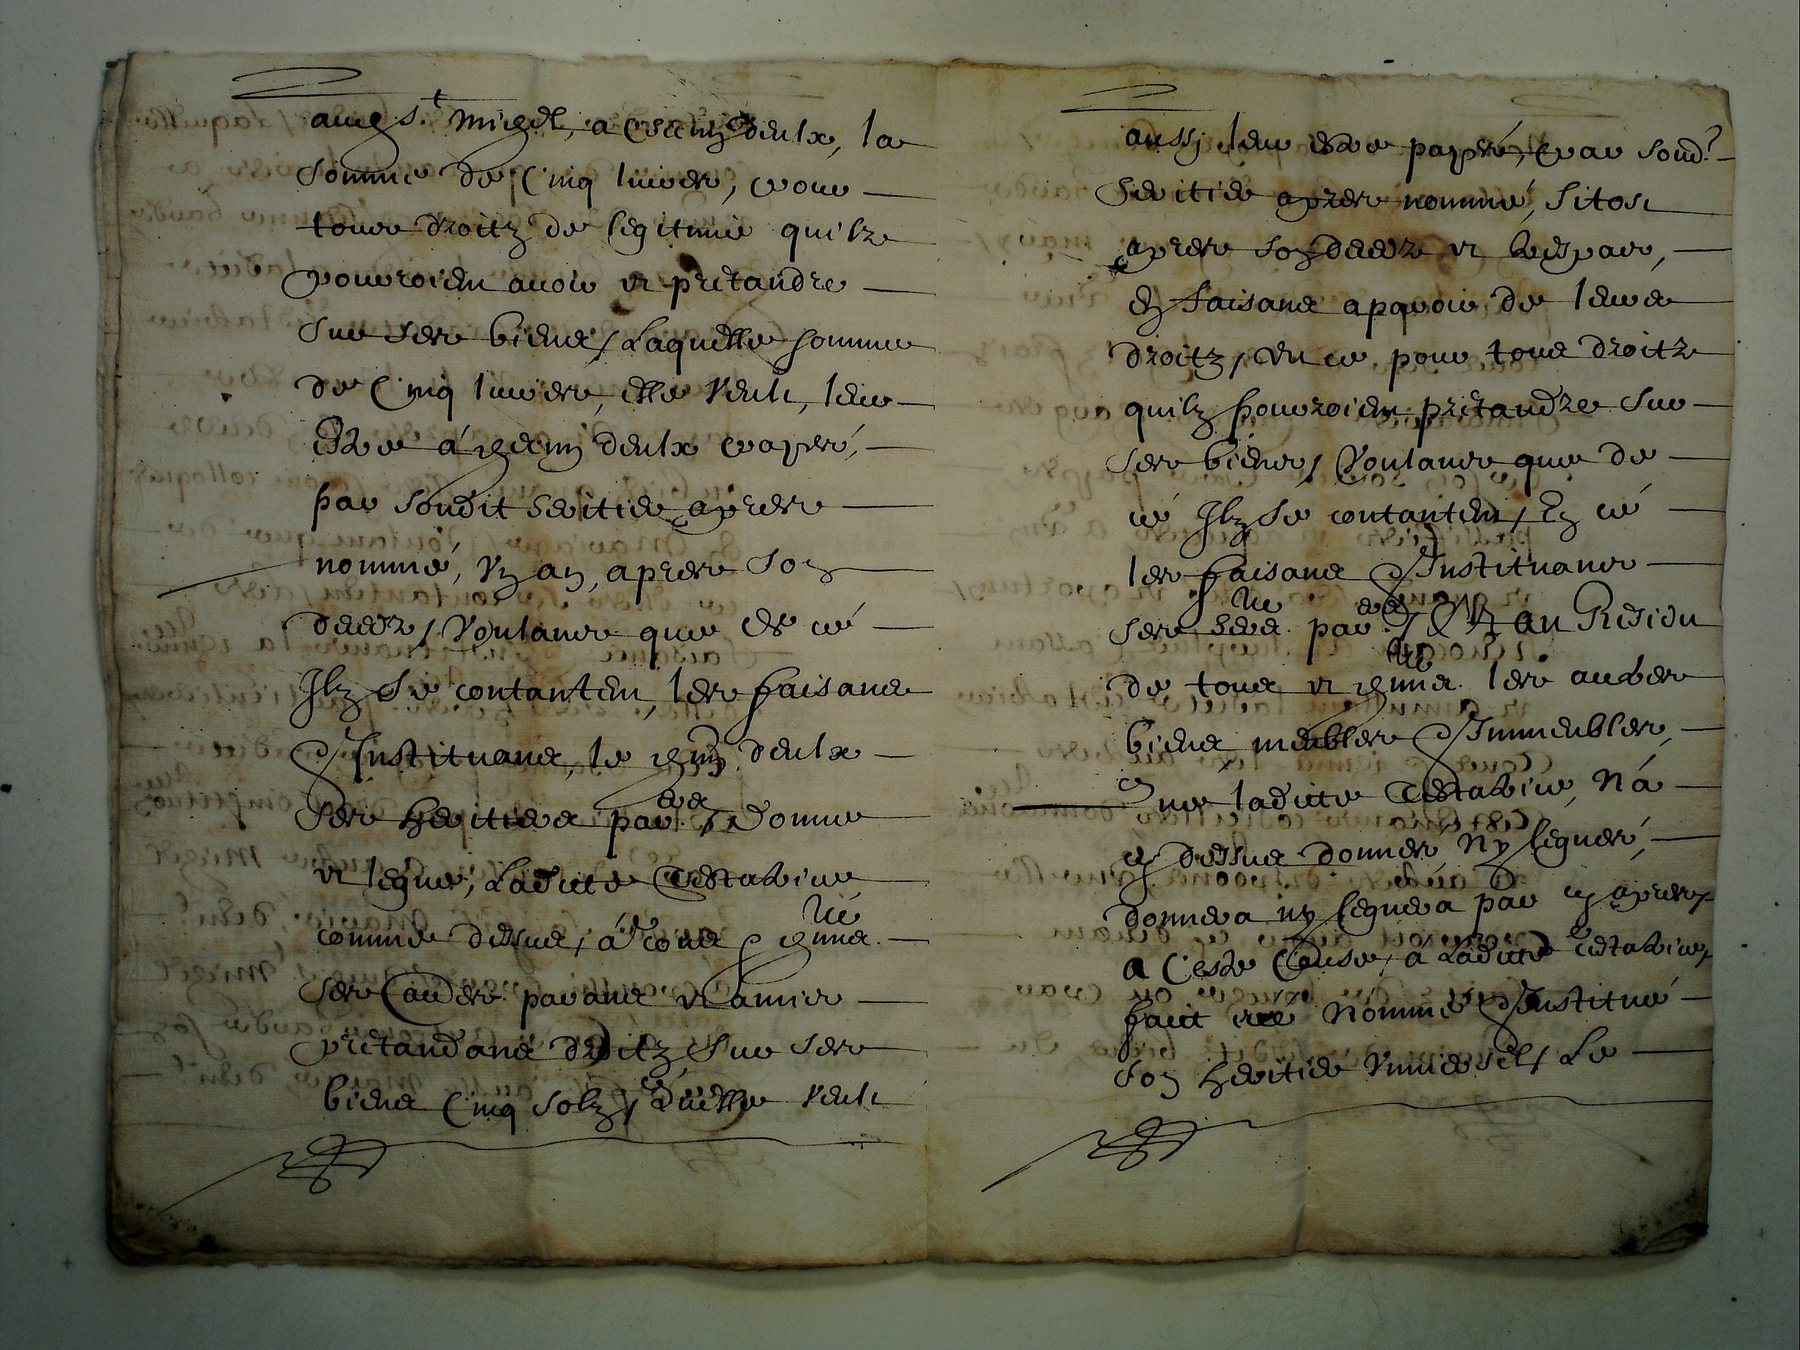 aung St Migel, a chacung d'eulx, la
somme de Cinq livres, pour
tous droitz de legitime quilz
pourroient avoir et pretandre
sur ses biens / Laquelle somme
de Cinq livres, elle veult, leur
Estre á chacung d'eulx payée,
par sondit heritier apres
nommé, Ung an, apres son
deces / Voulant que de cé
Ilz se contanten, les faisant
& Instituant, le chung d'eulx
ses heritiers par. / Donne
et legue, Ladicte Testatrice
comme dessus, á tous &
ses autres parans et amis
pretandans droitz sur ses
biens Cinq solz, / quelle veult
aussy leur estre payés, par sond.
heritier apres nommé, sitost
apres son deces et trespas,
En faisant aparoir de leurs
droitz, / Et ce pour tous droitz
quilz pourroient pretandre sur
ses biens, / Voulant que de
cé Ilz se contanten, / En cé
les faisant & Instituant
ses par. / Et au Residu
de tous et les autres
biens meubles & Immeubles,
Que ladicte Testatrice, N'a
cy dessus donnés, Ny legués,
donnera ny leguera par cy apres,
a Ceste Cause, á Ladicte Testatrice,
faict creé Nommé & Institué
son heritier Universel / Le